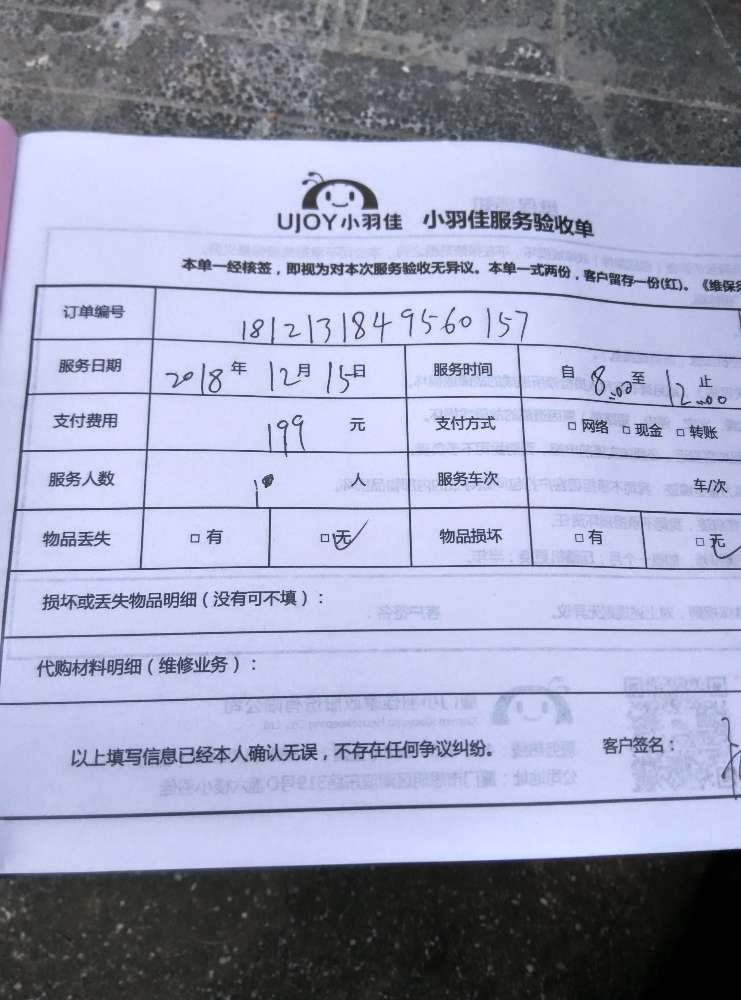 UJOY小羽佳 小羽佳服务验收单
本单一经核签，即视为对本次服务验收无异议。本单一式两份，客户留存一份(红)。《维保须
订单编号 1812131849560157
服务日期 2018年12月15日 服务时间 自8:00至12:00止
支付费用 199元 支付方式 □网络 □现金 □转账
服务人数 1人 服务车次 车/次
物品丢失 □有 □无 物品损坏 □有 □无
损坏或丢失物品明细（没有可不填）：
代购材料明细（维修业务）：
以上填写信息已经本人确认无误，不存在任何争议纠纷。 客户签名：